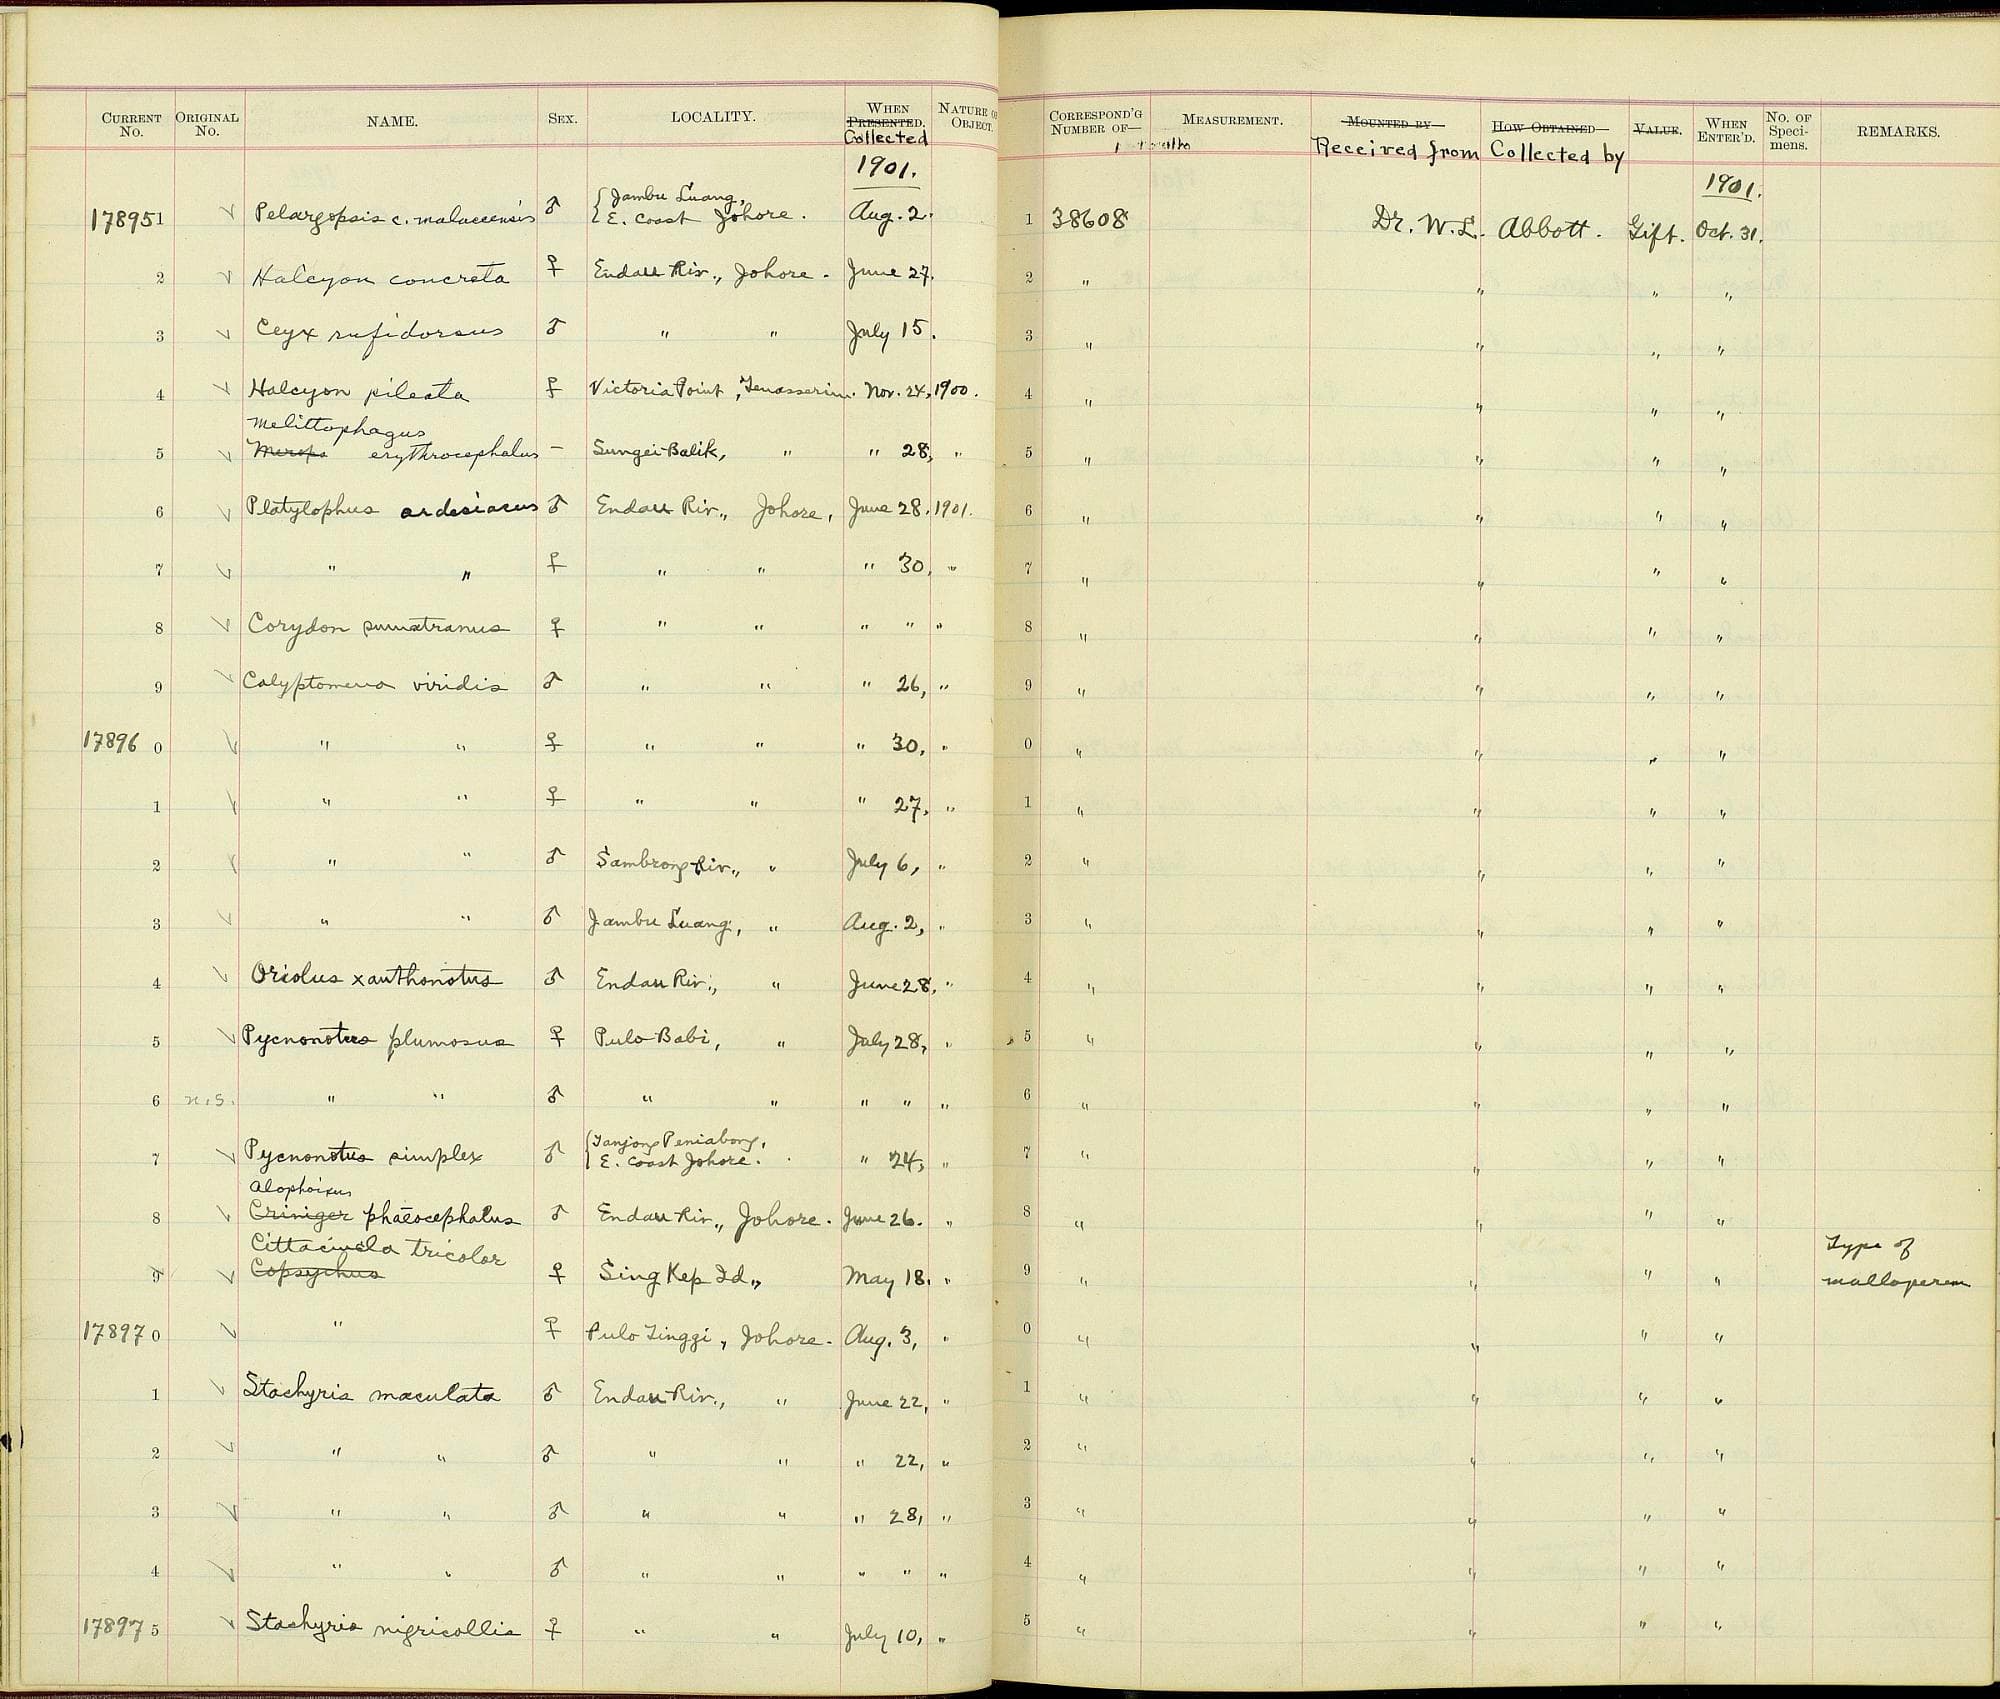 CURRENT No. ORIGINAL No. NAME. SEX. LOCALITY. WHEN PRESENTED. Collected NATURE OF OBJECT. CORRESPOND'G NUMBER OF— MEASUREMENT. MOUNTED BY Received from HOW OBTAINED Collected by VALUE. WHEN ENTER'D. No. OF Speci-mens. REMARKS.
1901. 1901.
178951 ✓ Pelargopsis c. malaccensis ♂ { Jambu Luang, E. Coast Johore. Aug. 2. 1 38608 Dr. W. L. Abbott. Gift. Oct. 31.
2 ✓ Halcyon concreta ♀ Endau Riv., Johore. June 27. 2 " " " "
3 ✓ Ceyx rufidorsus ♂ " " July 15. 3 " " " "
4 ✓ Halcyon pileata ♀ Victoria Point, Tenasserim. Nov. 24, 1900. 4 " " " "
Melittophagus
5 ✓ Merops erythrocephalus – Sungei Balik, " " 28, " 5 " " " "
6 ✓ Platylophus ardesiacus ♂ Endau Riv., Johore, June 28. 1901. 6 " " " "
7 ✓ " " ♀ " " " 30, " 7 " " " "
8 ✓ Corydon sumatranus ♀ " " " " " 8 " " " "
9 ✓ Calyptomena viridis ♂ " " " 26, " 9 " " " "
17896 0 ✓ " " ♀ " " " 30, " 0 " " " "
1 ✓ " " ♀ " " " 27, " 1 " " " "
2 ✓ " " ♂ Sambrong Riv., " July 6, " 2 " " " "
3 ✓ " " ♂ Jambu Luang, " Aug. 2, " 3 " " " "
4 ✓ Oriolus xanthonotus ♂ Endau Riv., " June 28, " 4 " " " "
5 ✓ Pycnonotus plumosus ♀ Pulo Babi, " July 28, " 5 " " " "
6 n.s. " " ♂ " " " " " 6 " " " "
7 ✓ Pycnonotus simplex ♂ { Tanjong Peniabong, E. Coast Johore. " 24, " 7 " " " "
Alophoixus
8 ✓ Criniger phaeocephalus ♂ Endau Riv., Johore. June 26. " 8 " " " "
Cittacincla tricolor Type of
9 ✓ Copsychus ♀ Sing Kep Id., May 18. " 9 " " " " malloperem
17897 0 ✓ " ♀ Pulo Tinggi, Johore. Aug. 3, " 0 " " " "
1 ✓ Stachyris maculata ♂ Endau Riv., " June 22, " 1 " " " "
2 ✓ " " ♂ " " " 22, " 2 " " " "
3 ✓ " " ♂ " " " 28, " 3 " " " "
4 ✓ " " ♂ " " " " " 4 " " " "
17897 5 ✓ Stachyris nigricollis ♀ " " July 10, " 5 " " " "